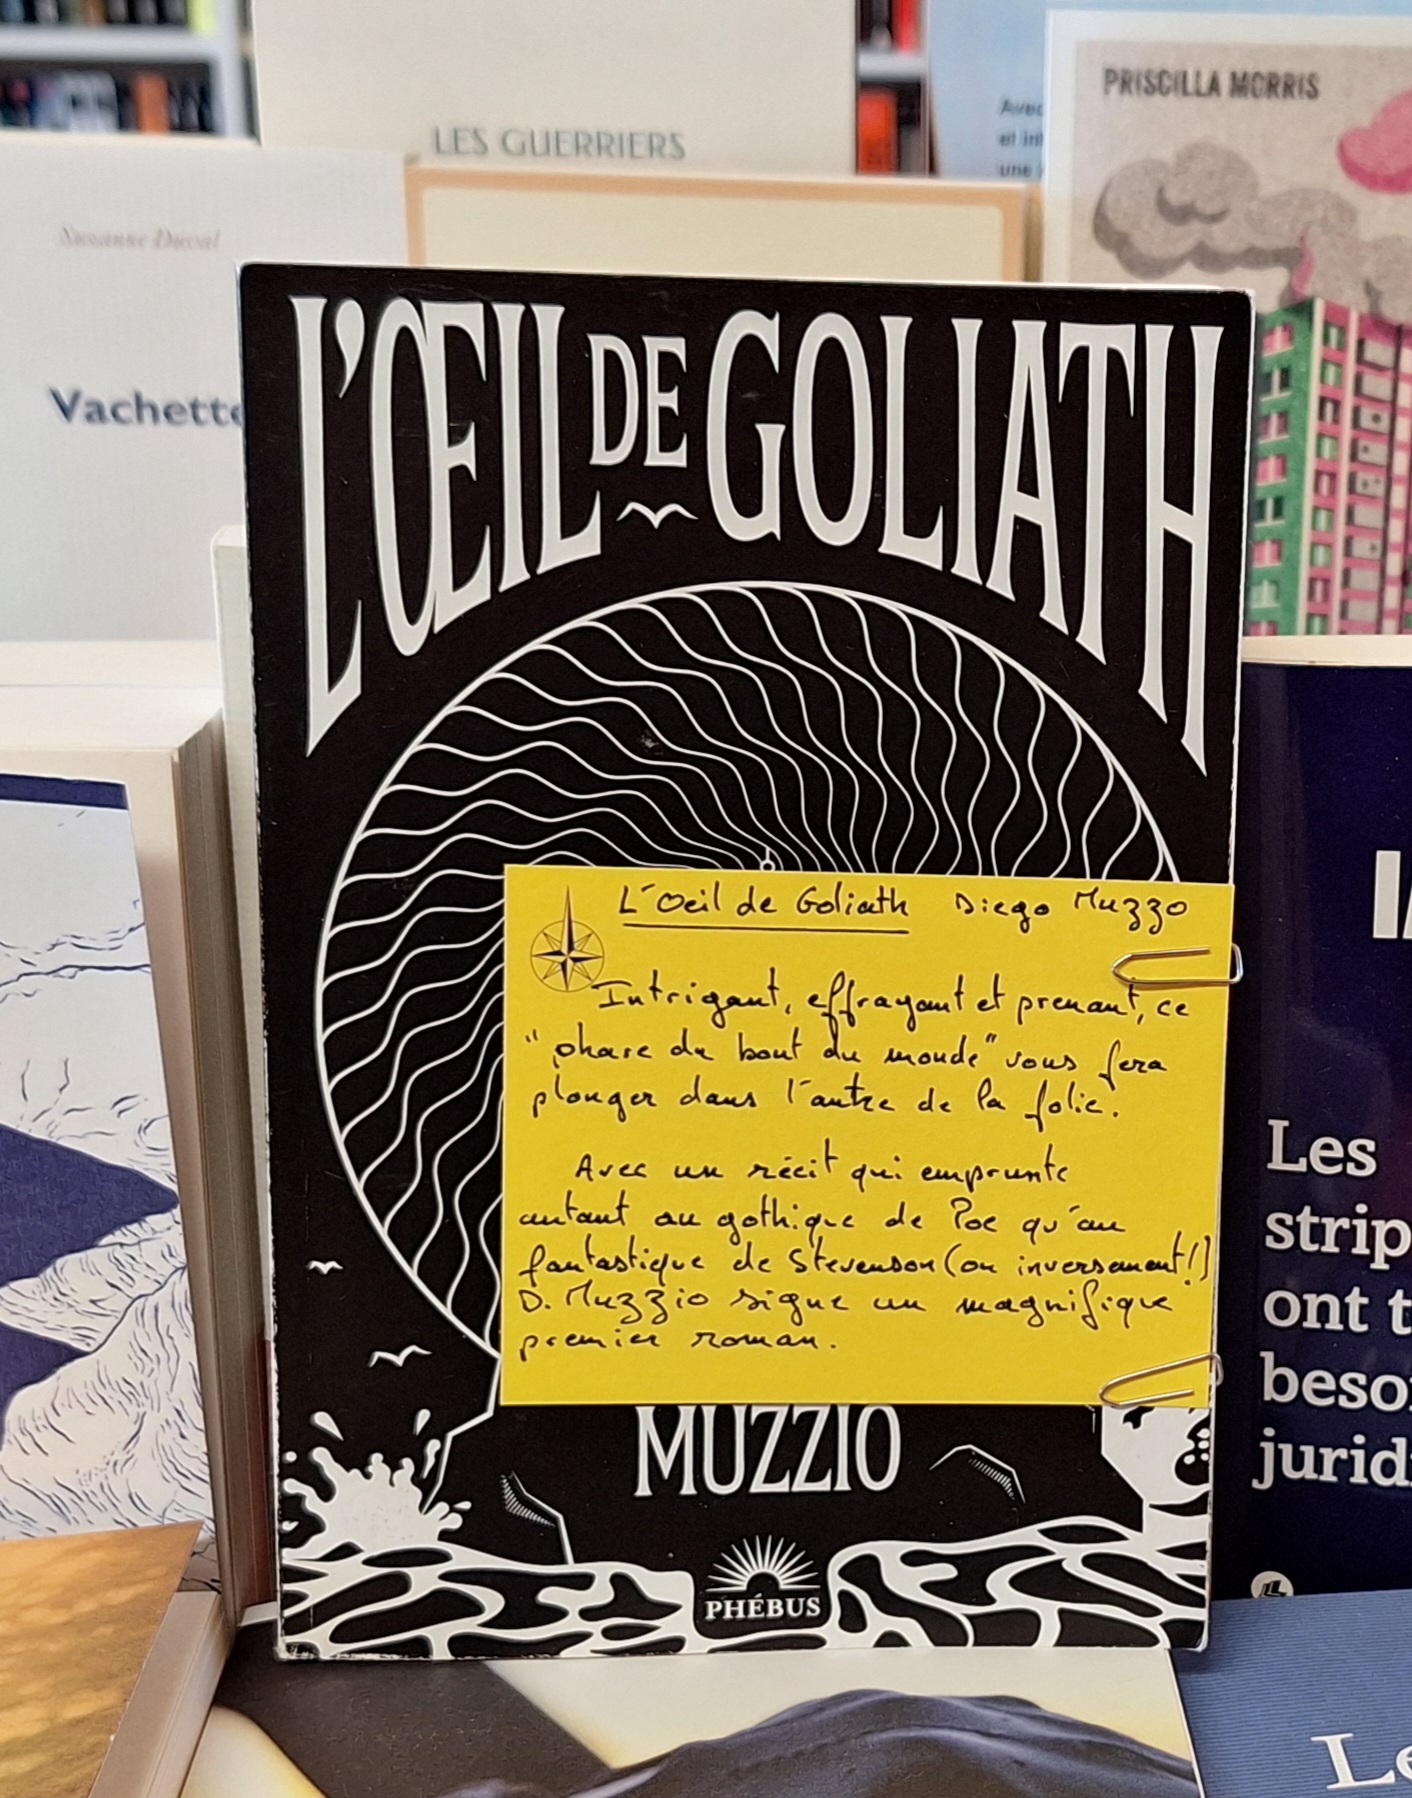 LES GUERRIERS
PRISCILLA MORRIS
Avec
et int
une
Suzanne Duval
Vachette
L'ŒIL DE GOLIATH
L'Oeil de Goliath Diego Muzzo
Intrigant, effrayant et prenant, ce
"phare du bout du monde" vous fera
plonger dans l'antre de la folie.
Avec un récit qui emprunte
autant au gothique de Poe qu'au
fantastique de Stevenson (ou inversement!)
D. Muzzio signe un magnifique
premier roman.
MUZZIO
PHÉBUS
Les
strip
ont t
beso
juridi
Le